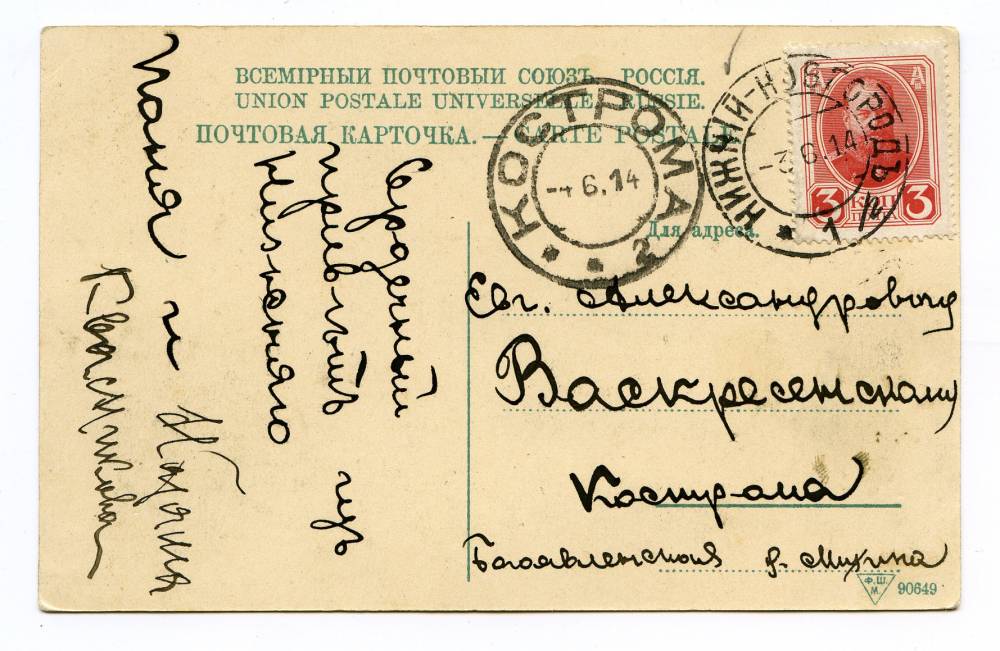 ВСЕМІРНЫЙ ПОЧТОВЫЙ СОЮЗЪ. РОССІЯ.
UNION POSTALE UNIVERSELLE. RUSSIE.
ПОЧТОВАЯ КАРТОЧКА. — CARTE POSTALE
КОСТРОМА
-4 6.14
2
НИЖНІЙ-НОВГОРОДЪ
-3 6 14
1
3 КОП 3
Для адреса.
Евг. Александровичу
Васкресенскому
Кострома
Багоявленская д. Мухина
Ф.Ш.
М.
90649
Сердечный
привѣтъ изъ
Нижняго